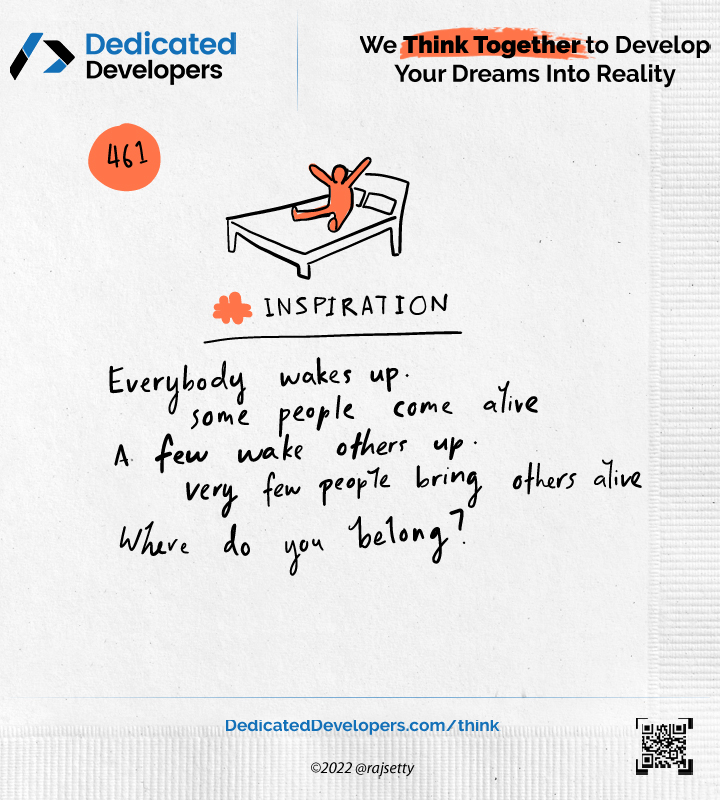 Dedicated
Developers
We Think Together to Develop
Your Dreams Into Reality
461
INSPIRATION
Everybody wakes up.
some people come alive
A few wake others up.
very few people bring others alive
Where do you belong?
DedicatedDevelopers.com/think
©2022 @rajsetty